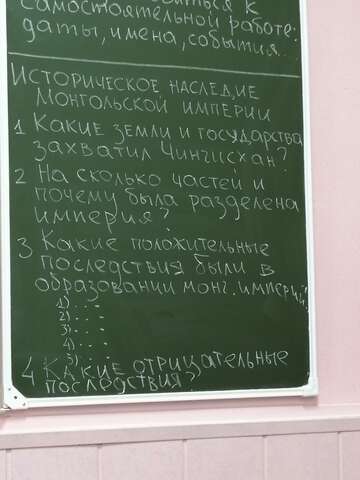 самостоятельной работе:
даты, имена, события.
Историческое наследие
Монгольской империи
1 Какие земли и государства
захватил Чингисхан?
2 На сколько частей и
почему была разделена
империя?
3 Какие положительные
последствия были в
образовании монг. империи.
1) . . .
2) . . .
3) . . .
4) . . .
5) . . .
4 Какие отрицательные
последствия?